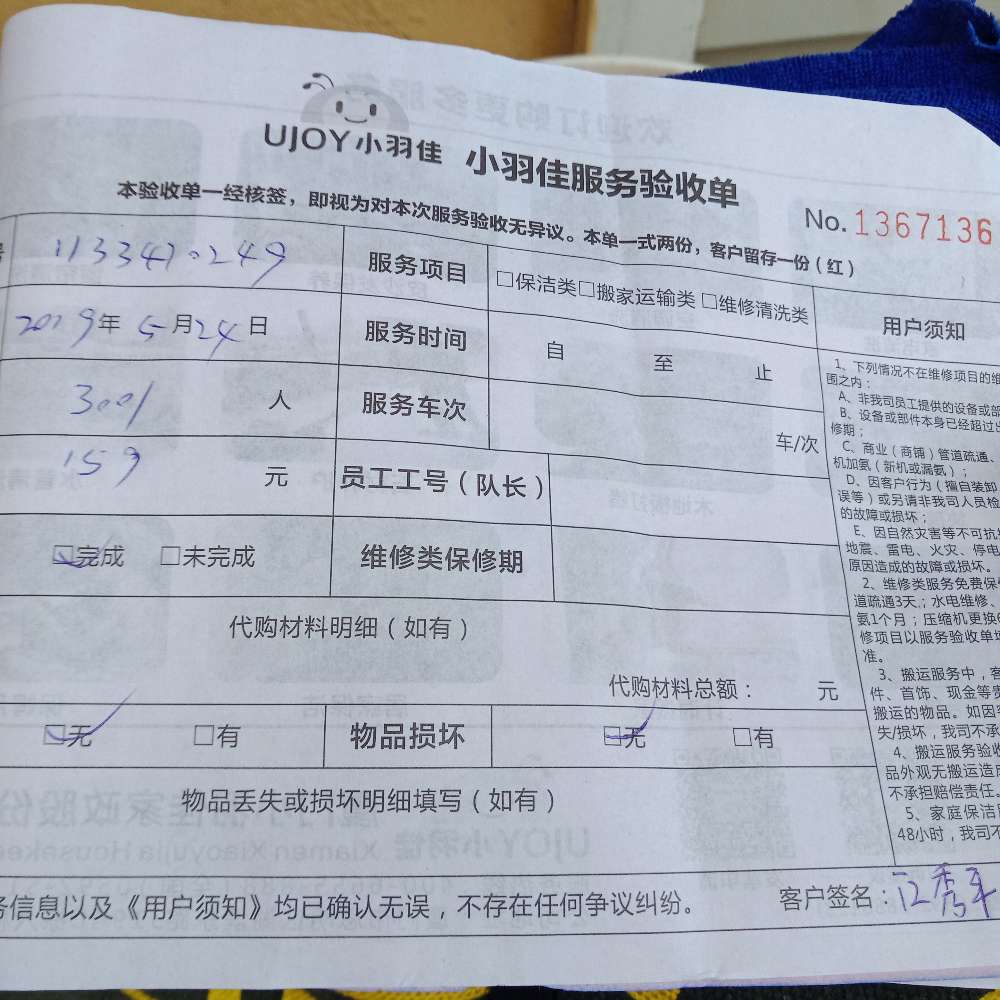 UJOY小羽佳 小羽佳服务验收单
本验收单一经核签，即视为对本次服务验收无异议。本单一式两份，客户留存一份（红）
No.1367136
服务项目 □保洁类□搬家运输类 □维修清洗类
用户须知
2019年 5月24日 服务时间 自 至 止
3001 人 服务车次 车/次
159 元 员工工号（队长）
☑完成 □未完成 维修类保修期
代购材料明细（如有）
代购材料总额： 元
☑无 □有 物品损坏 ☑无 □有
物品丢失或损坏明细填写（如有）
务信息以及《用户须知》均已确认无误，不存在任何争议纠纷。
客户签名：
1、下列情况不在维修项目的维
围之内：
A、非我司员工提供的设备或部
B、设备或部件本身已经超过出
修期；
C、商业（商铺）管道疏通、
机加氨（新机或漏氨）；
D、因客户行为（擅自装卸
误等）或另请非我司人员检
的故障或损坏；
E、因自然灾害等不可抗
地震、雷电、火灾、停电
原因造成的故障或损坏。
2、维修类服务免费保
道疏通3天；水电维修、
氨1个月；压缩机更换
修项目以服务验收单
准。
3、搬运服务中，客
件、首饰、现金等
搬运的物品。如因
失/损坏，我司不承
4、搬运服务验收
品外观无搬运造成
不承担赔偿责任。
5、家庭保洁
48小时，我司不